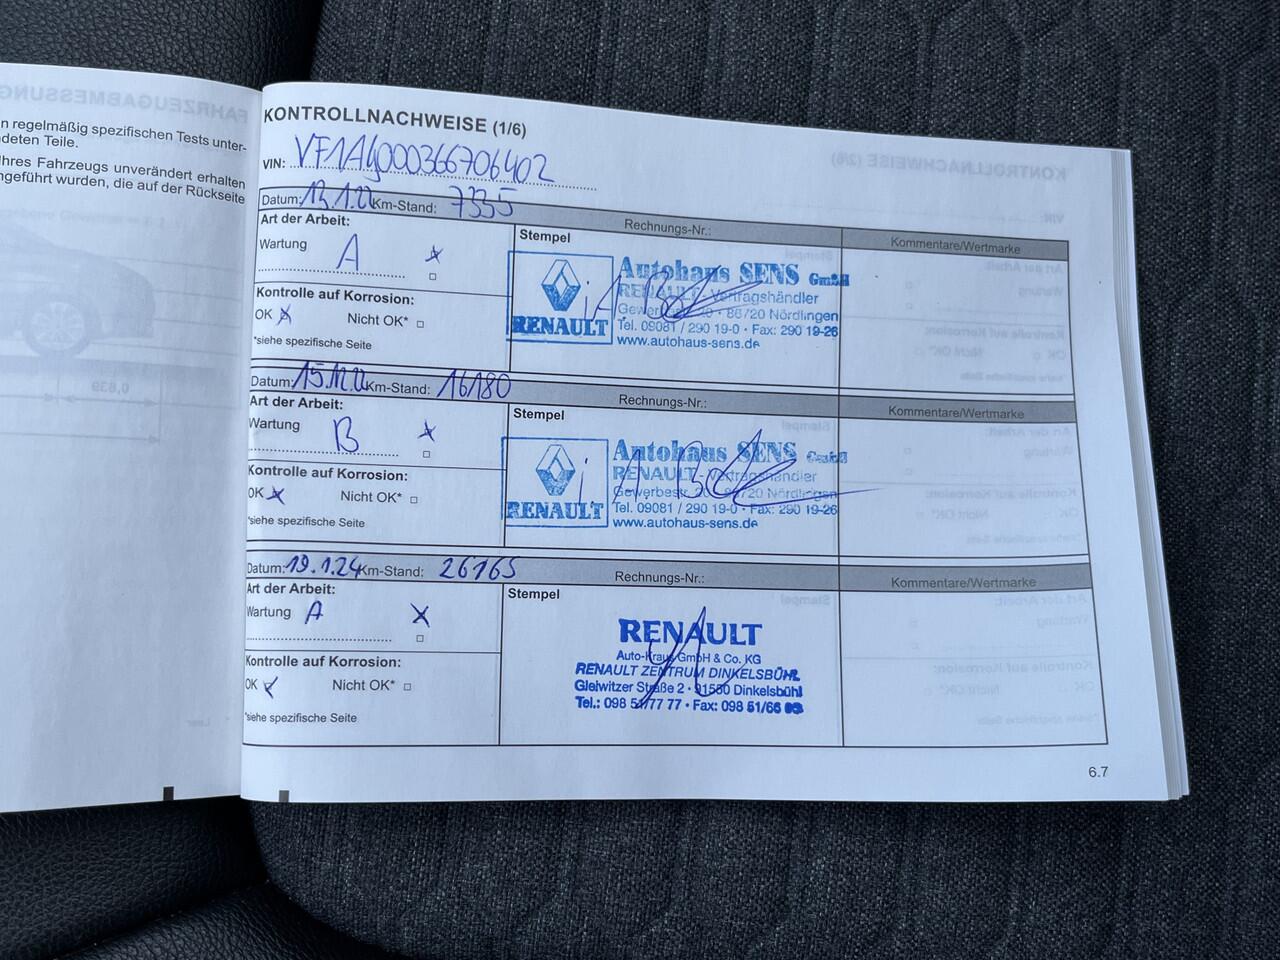 n regelmäßig spezifischen Tests unter-
deten Teile.
hres Fahrzeugs unverändert erhalten
ngeführt wurden, die auf der Rückseite
KONTROLLNACHWEISE (1/6)
VIN: VF1AG000366706402
Datum: 13.1.22 Km-Stand: 7335
Rechnungs-Nr.:
Kommentare/Wertmarke
Art der Arbeit:
Stempel
Wartung A
Kontrolle auf Korrosion:
OK Nicht OK*
*siehe spezifische Seite
RENAULT
Autohaus SENS GmbH
RENAULT - Vertragshändler
Gewerbestr. 20 · 86720 Nördlingen
Tel. 09081 / 290 19-0 · Fax: 290 19-26
www.autohaus-sens.de
Datum: 15.12.22 Km-Stand: 16180
Rechnungs-Nr.:
Kommentare/Wertmarke
Art der Arbeit:
Stempel
Wartung B
Kontrolle auf Korrosion:
OK Nicht OK*
*siehe spezifische Seite
RENAULT
Autohaus SENS GmbH
RENAULT - Vertragshändler
Gewerbestr. 20 · 86720 Nördlingen
Tel. 09081 / 290 19-0 · Fax: 290 19-26
www.autohaus-sens.de
Datum: 19.1.24 Km-Stand: 26165
Rechnungs-Nr.:
Kommentare/Wertmarke
Art der Arbeit:
Stempel
Wartung A
Kontrolle auf Korrosion:
OK Nicht OK*
*siehe spezifische Seite
RENAULT
Auto-Kraus GmbH & Co. KG
RENAULT ZENTRUM DINKELSBÜHL
Gleiwitzer Straße 2 · 91550 Dinkelsbühl
Tel.: 098 51/77 77 · Fax: 098 51/66
6.7